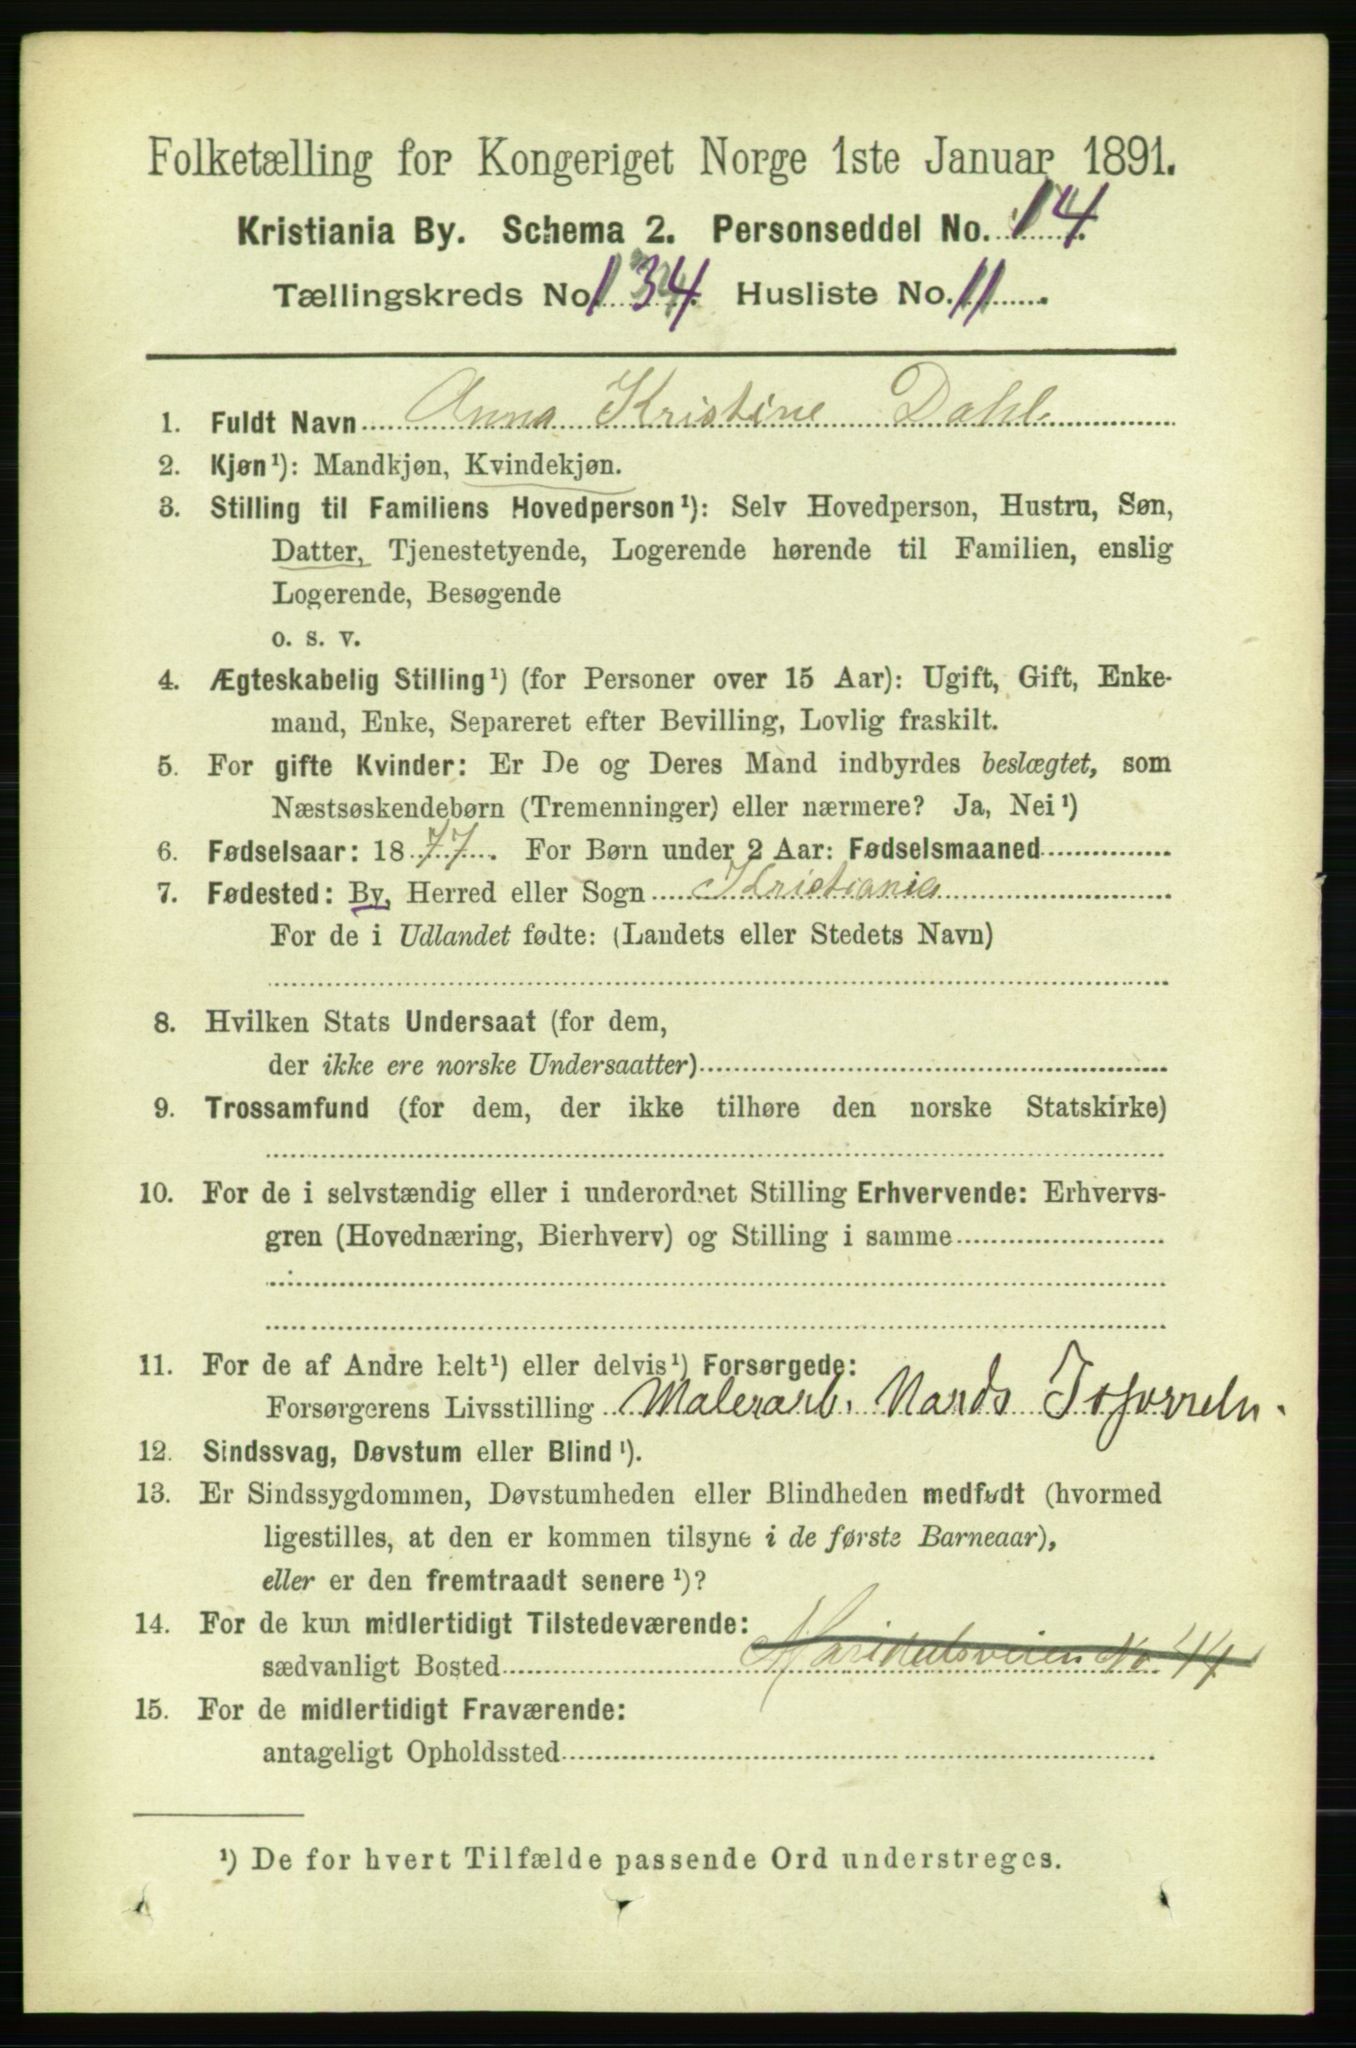 Folketælling for Kongeriget Norge 1ste Januar 1891.
Kristiania By. Schema 2. Personseddel No. 14.
Tællingskreds No. 134. Husliste No. 11.
1. Fuldt Navn Anna Kristine Dahl
2. Kjøn¹): Mandkjøn, Kvindekjøn.
3. Stilling til Familiens Hovedperson¹): Selv Hovedperson, Hustru, Søn,
Datter, Tjenestetyende, Logerende hørende til Familien, enslig
Logerende, Besøgende
o. s. v.
4. Ægteskabelig Stilling¹) (for Personer over 15 Aar): Ugift, Gift, Enke-
mand, Enke, Separeret efter Bevilling, Lovlig fraskilt.
5. For gifte Kvinder: Er De og Deres Mand indbyrdes beslægtet, som
Næstsøskendebørn (Tremenninger) eller nærmere? Ja, Nei¹)
6. Fødselsaar: 1877. For Børn under 2 Aar: Fødselsmaaned
7. Fødested: By, Herred eller Sogn Kristiania
For de i Udlandet fødte: (Landets eller Stedets Navn)
8. Hvilken Stats Undersaat (for dem,
der ikke ere norske Undersaatter)
9. Trossamfund (for dem, der ikke tilhøre den norske Statskirke)
10. For de i selvstændig eller i underordnet Stilling Erhvervende: Erhvervs-
gren (Hovednæring, Bierhverv) og Stilling i samme
11. For de af Andre helt¹) eller delvis¹) Forsørgede:
Forsørgerens Livsstilling Malerarb.
12. Sindssvag, Døvstum eller Blind¹).
13. Er Sindssygdommen, Døvstumheden eller Blindheden medfødt (hvormed
ligestilles, at den er kommen tilsyne i de første Barneaar),
eller er den fremtraadt senere¹)?
14. For de kun midlertidigt Tilstedeværende:
sædvanligt Bosted Maridalsveien No 44
15. For de midlertidigt Fraværende:
antageligt Opholdssted
¹) De for hvert Tilfælde passende Ord understreges.